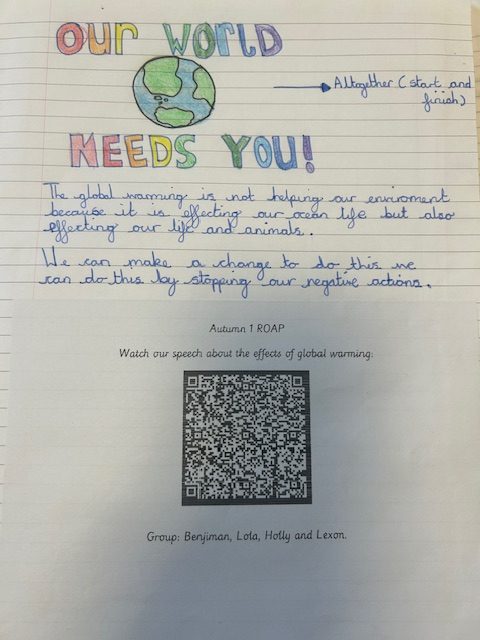 OUR WORLD
Altogether (start and
finish)
NEEDS YOU!
The global warming is not helping our enviroment
because it is effecting our ocean life but also
effecting our life and animals.
We can make a change to do this we
can do this by stopping our negative actions.
Autumn 1 ROAP
Watch our speech about the effects of global warming:
Group: Benjiman, Lola, Holly and Lexon.